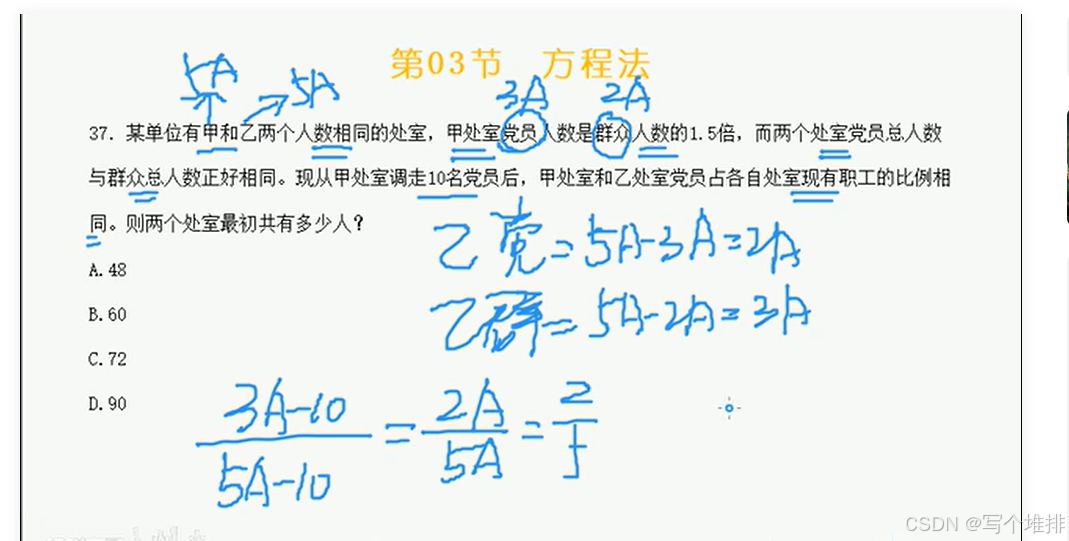 第03节 方程法
5A
5A
3A
2A
37. 某单位有甲和乙两个人数相同的处室，甲处室党员人数是群众人数的1.5倍，而两个处室党员总人数
与群众总人数正好相同。现从甲处室调走10名党员后，甲处室和乙处室党员占各自处室现有职工的比例相
同。则两个处室最初共有多少人？
A.48
B.60
C.72
D.90
乙党=5A-3A=2A
乙群=5A-2A=3A
3A-10
5A-10
=
2A
5A
=
2
5
CSDN @写个堆排